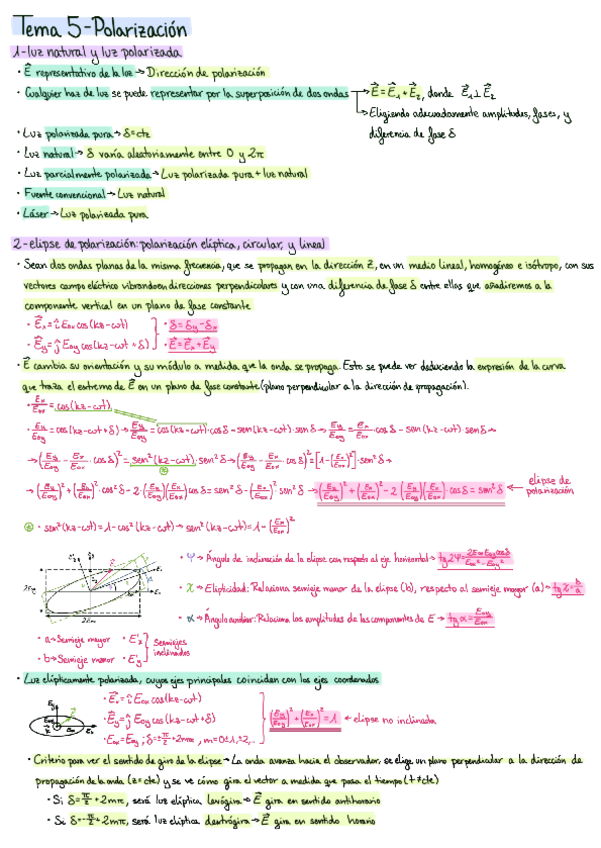 Tema 5-Polarización
1-luz natural y luz polarizada
· E⃗ representativo de la luz → Dirección de polarización
· Cualquier haz de luz se puede representar por la superposición de dos ondas → E⃗=E⃗₁+E⃗₂, donde E⃗₁⊥E⃗₂
→ Eligiendo adecuadamente amplitudes, fases, y
diferencia de fase δ
· Luz polarizada pura → δ=cte
· Luz natural → δ varía aleatoriamente entre 0 y 2π
· Luz parcialmente polarizada → Luz polarizada pura + luz natural
· Fuente convencional → Luz natural
· Láser → Luz polarizada pura
2-elipse de polarización: polarización elíptica, circular, y lineal
· Sean dos ondas planas de la misma frecuencia, que se propagan en la dirección Z, en un medio lineal, homogéneo e isótropo, con sus
vectores campo eléctrico vibrando en direcciones perpendiculares y con una diferencia de fase δ entre ellas que añadiremos a la
componente vertical en un plano de fase constante
· E⃗ₓ=i⃗ E₀ₓ cos(kz-ωt) · δ=δy-δx
· E⃗y=j⃗ E₀y cos(kz-ωt+δ) · E⃗=E⃗x+E⃗y
· E⃗ cambia su orientación y su módulo a medida que la onda se propaga. Esto se puede ver deduciendo la expresión de la curva
que traza el extremo de E⃗ en un plano de fase constante (plano perpendicular a la dirección de propagación).
· Ex/E₀x = cos(kz-ωt)
· Ey/E₀y = cos(kz-ωt+δ) → Ey/E₀y = cos(kz-ωt)·cosδ-sen(kz-ωt)·senδ → Ey/E₀y = Ex/E₀x·cosδ-sen(kz-ωt)·senδ →
→ (Ey/E₀y - Ex/E₀x·cosδ)² = sen²(kz-ωt)·sen²δ → (Ey/E₀y - Ex/E₀x·cosδ)² = [1-(Ex/E₀x)²]·sen²δ →
→ (Ey/E₀y)²+(Ex/E₀x)²·cos²δ-2(Ey/E₀y)(Ex/E₀x)cosδ = sen²δ-(Ex/E₀x)²·sen²δ → (Ey/E₀y)²+(Ex/E₀x)²-2(Ey/E₀y)(Ex/E₀x)cosδ = sen²δ ← elipse de
polarización
· sen²(kz-ωt)=1-cos²(kz-ωt) → sen²(kz-ωt)=1-(Ex/E₀x)²
· Ψ → Ángulo de inclinación de la elipse con respecto al eje horizontal → tg2Ψ = 2E₀xE₀ycosδ/E₀x²-E₀y²
· χ → Elipticidad: Relaciona semieje menor de la elipse (b), respecto al semieje mayor (a) → tgχ = b/a
· α → Ángulo auxiliar: Relaciona las amplitudes de las componentes de E → tgα = E₀y/E₀x
· a → Semieje mayor · E'x
· b → Semieje menor · E'y
Semiejes
inclinados
· Luz elípticamente polarizada, cuyos ejes principales coinciden con los ejes coordenados
· E⃗x=i⃗ E₀x cos(kz-ωt)
· E⃗y=j⃗ E₀y cos(kz-ωt+δ) (Ey/E₀y)²+(Ex/E₀x)²=1 ← elipse no inclinada
· E₀x=E₀y; δ=±π/2+2mπ, m=0±1,±2,...
· Criterio para ver el sentido de giro de la elipse → La onda avanza hacia el observador, se elige un plano perpendicular a la dirección de
propagación de la onda (z=cte) y se ve cómo gira el vector a medida que pasa el tiempo (t≠cte)
· Si δ=π/2+2mπ, será luz elíptica levógira → E⃗ gira en sentido antihorario
· Si δ=-π/2+2mπ, será luz elíptica dextrógira → E⃗ gira en sentido horario